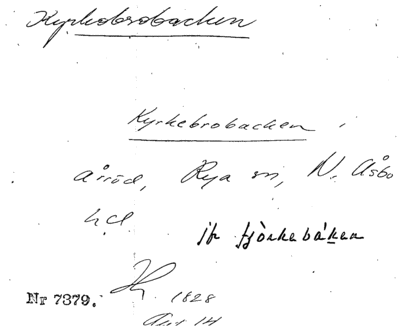 Kyrkobrobacken
Kyrkebrobacken
Årröd, Rya sn, N. Åsbo
hd.
jfr tjörkebåken
Nr 7379.
1828